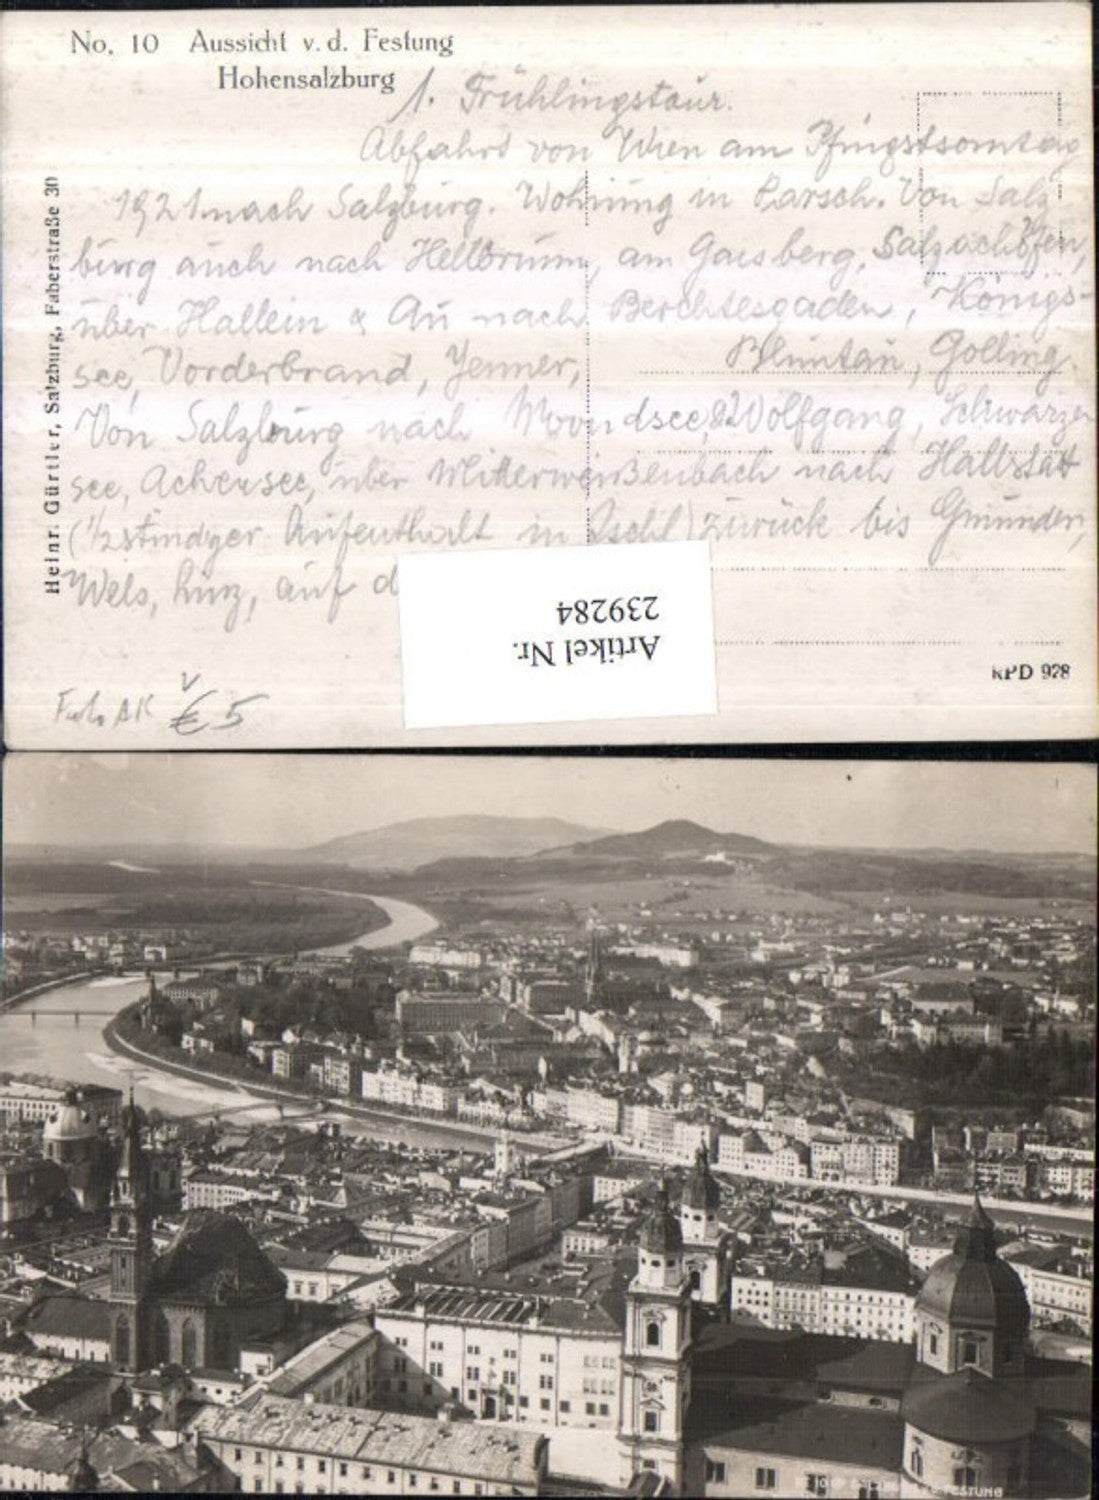 No. 10 Aussicht v. d. Festung
Hohensalzburg
1. Frühlingstour.
Abfahrt von Wien am Pfingstsonntag
1921 nach Salzburg. Wohnung in Parsch. Von Salz
burg auch nach Hellbrunn, am Gaisberg, Salzachöfen,
über Hallein & Au nach Berchtesgaden, Königs-
see, Vorderbrand, Jenner, Bluntau, Golling.
Von Salzburg nach Mondsee, St. Wolfgang, Schwarzen
see, Achensee, über Mitterweißenbach nach Hallstatt
(½stündiger Aufenthalt in Ischl) zurück bis Gmunden,
Wels, Linz, auf d
Heinr. Gürtler, Salzburg, Faberstraße 30
Artikel Nr.
239284
KPD 928
Foto AK € 5
SALZBURG FESTUNG